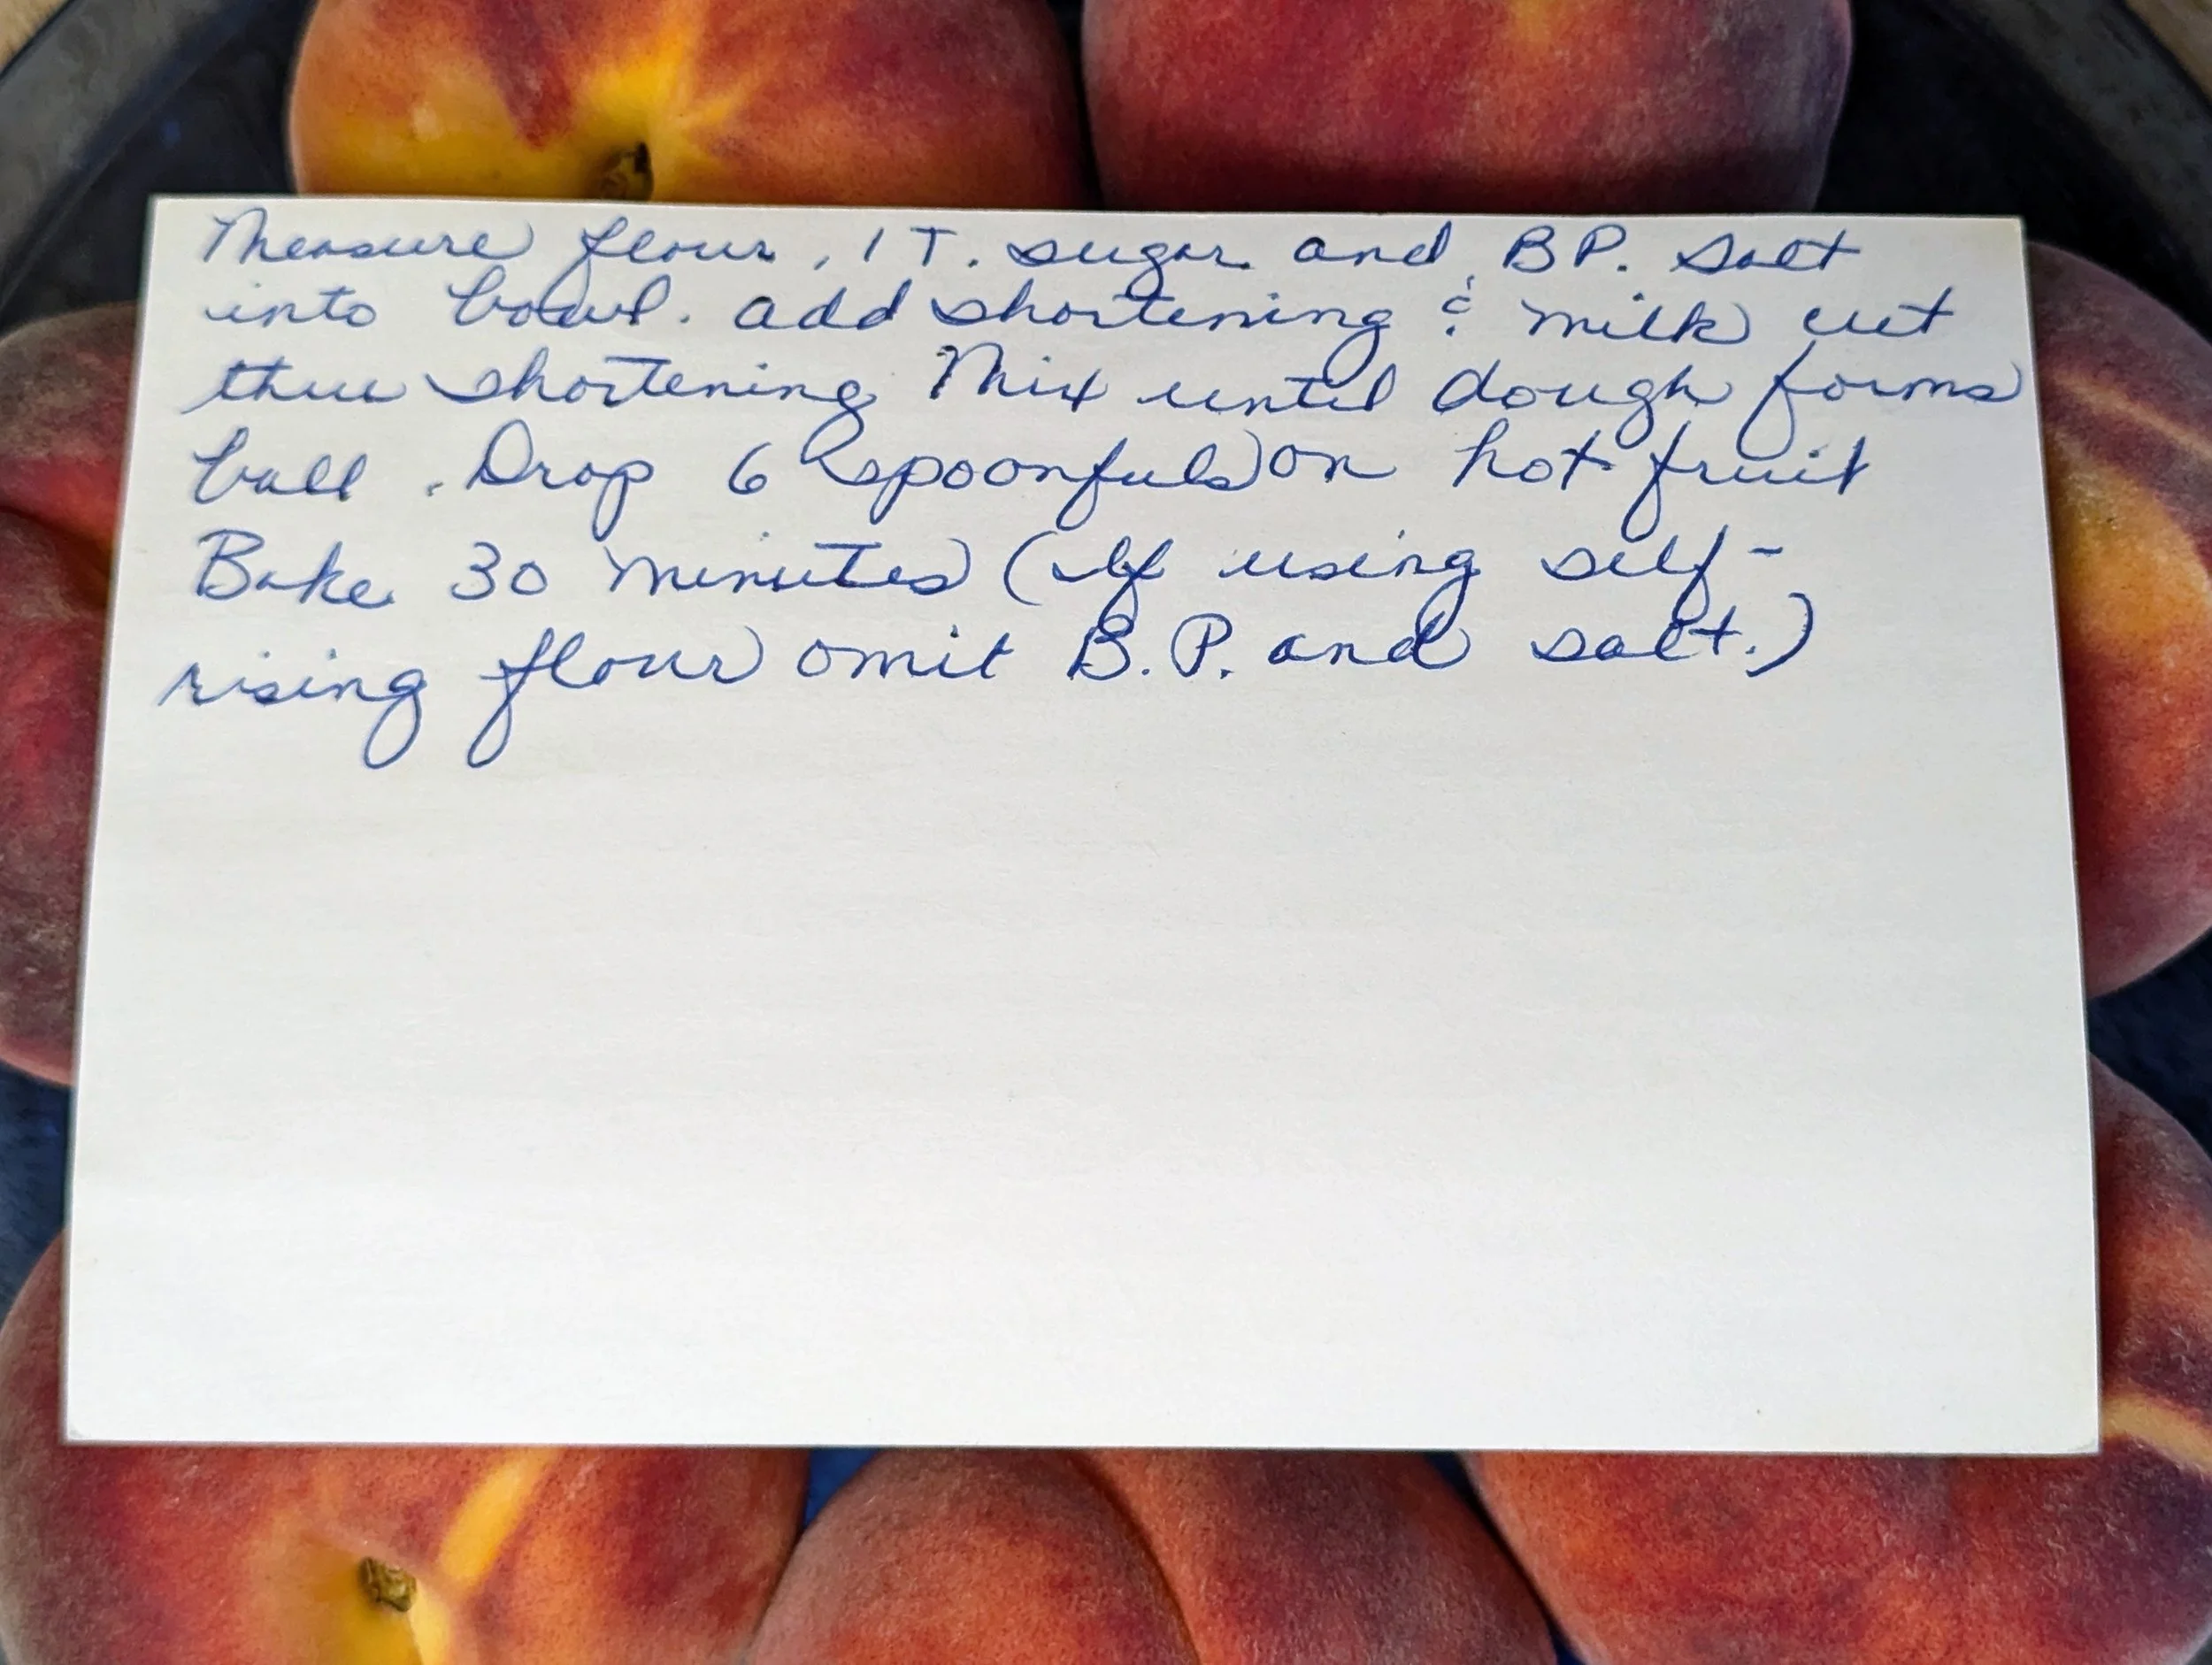 Measure flour, 1 T. sugar and B P. salt
into bowl. add shortening & milk cut
thru shortening Mix until dough forms
ball. Drop 6 spoonfuls on hot fruit
Bake 30 minutes (If using self-
rising flour omit B.P. and salt.)